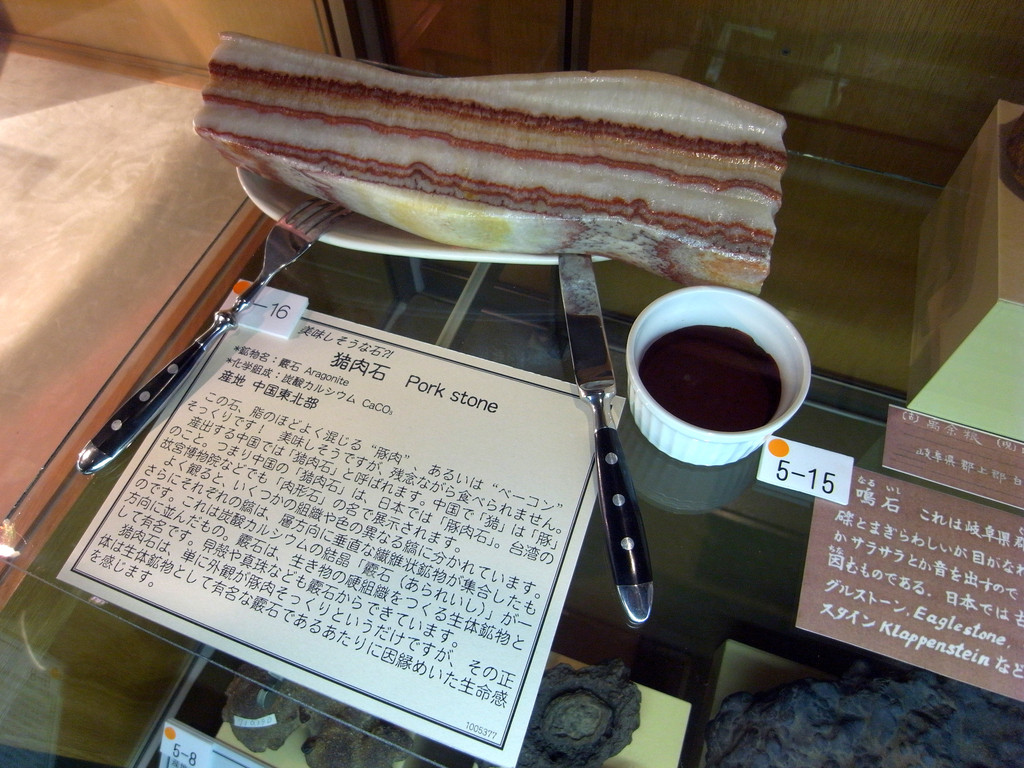 -16
美味しそうな石?!
猪肉石 Pork stone
*鉱物名：霰石 Aragonite
*化学組成：炭酸カルシウム CaCO₃
産地 中国東北部
この石、脂のほどよく混じる“豚肉”、あるいは“ベーコン”
そっくりです！美味しそうですが、残念ながら食べられません。
産出する中国では「猪肉石」と呼ばれます。中国で「猪」は「豚」
のこと。つまり中国の「猪肉石」は、日本では「豚肉石」。台湾の
故宮博物院などでも「肉形石」の名で展示されます。
よく観ると、いくつかの組織や色の異なる縞に分かれています。
さらにそれぞれの縞は、層方向に垂直な繊維状鉱物が集合したも
のです。これは炭酸カルシウムの結晶「霰石（あられいし）」が一
方向に並んだもの。霰石は、生き物の硬組織をつくる生体鉱物と
して有名です。貝殻や真珠なども霰石からできています。
猪肉石は、単に外観が豚肉そっくりというだけですが、その正
体は生体鉱物として有名な霰石であるあたりに因縁めいた生命感
を感じます。
1005377
5-15
岐阜県郡上郡白
なる いし
鳴石 これは岐阜県
礫とまぎらわしいが目がなれ
かサラサラとか音を出すので
因むものである．日本ではも
グルストーン, Eaglestone,
スタイン Klappenstein など
5-8